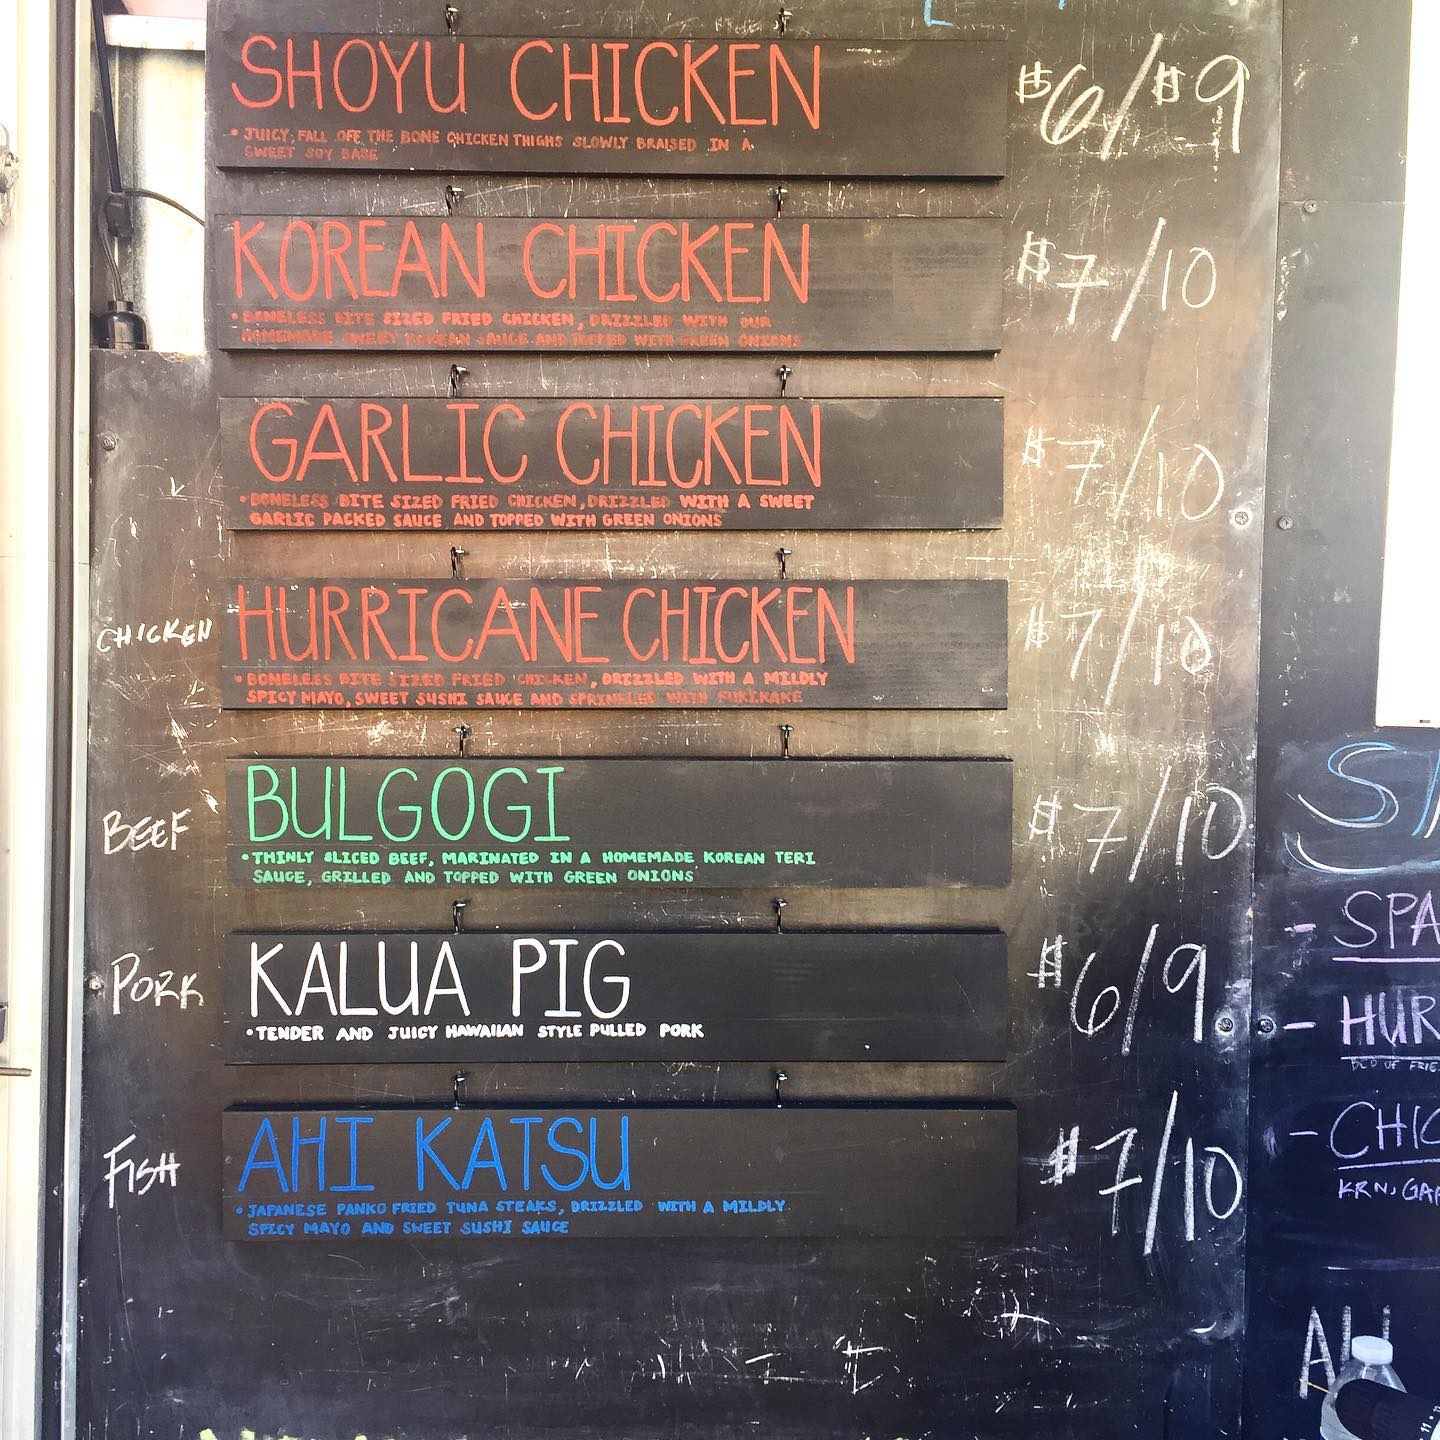 SHOYU CHICKEN $6/$9
• JUICY, FALL OFF THE BONE CHICKEN THIGHS SLOWLY BRAISED IN A
SWEET SOY BASE
KOREAN CHICKEN $7/10
• BONELESS BITE SIZED FRIED CHICKEN, DRIZZLED WITH OUR
HOMEMADE SWEET KOREAN SAUCE AND TOPPED WITH GREEN ONIONS
GARLIC CHICKEN $7/10
• BONELESS BITE SIZED FRIED CHICKEN, DRIZZLED WITH A SWEET
GARLIC PACKED SAUCE AND TOPPED WITH GREEN ONIONS
CHICKEN HURRICANE CHICKEN $7/10
• BONELESS BITE SIZED FRIED CHICKEN, DRIZZLED WITH A MILDLY
SPICY MAYO, SWEET SUSHI SAUCE AND SPRINKLED WITH FURIKAKE
BEEF BULGOGI $7/10
• THINLY SLICED BEEF, MARINATED IN A HOMEMADE KOREAN TERI
SAUCE, GRILLED AND TOPPED WITH GREEN ONIONS
PORK KALUA PIG $6/9
• TENDER AND JUICY HAWAIIAN STYLE PULLED PORK
FISH AHI KATSU $7/10
• JAPANESE PANKO FRIED TUNA STEAKS, DRIZZLED WITH A MILDLY
SPICY MAYO AND SWEET SUSHI SAUCE
- SPA
- HUR
- CHIC
KRN, GAR